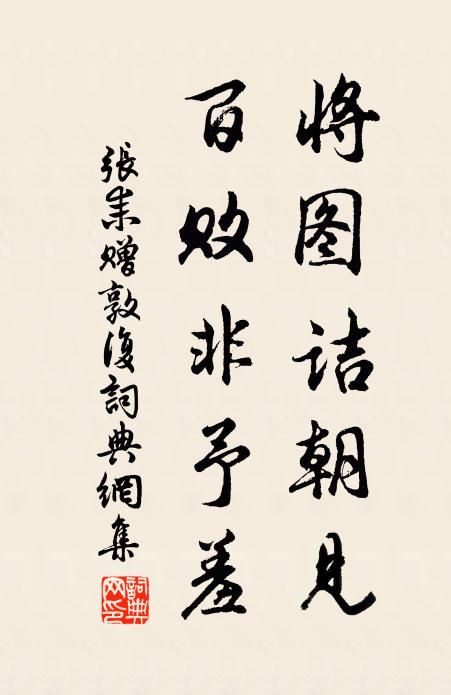 将图诘朝见
百败非予羞
張耒贈敦復詞典網集
詞典网印